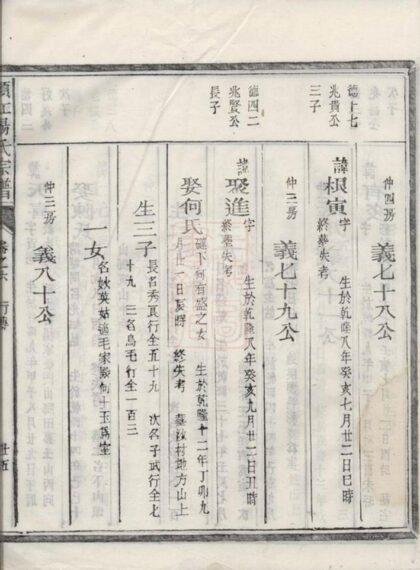 德七七
兆貴公
三子
德四二
兆賢公
長子
仲四房
義七十八公
諱根寅 字 生於乾隆八年癸亥七月廿二日巳時
終墓失考
仲三房
義七十九公
諱聚進 字 生於乾隆八年癸亥九月廿二日丑時
終墓失考
娶何氏 礁下何有盛之女 生於乾隆十二年丁卯九
月廿一日寅時 終失考 墓 村地方山上
生三子 長名秀真行全五十九 次名子武行全七
十九 三名烏毛行全一百三
一女 名 英姑適毛家 何十玉為室
仲三房
義八十公
江楊氏宗譜
卷之六 行傳
廿五